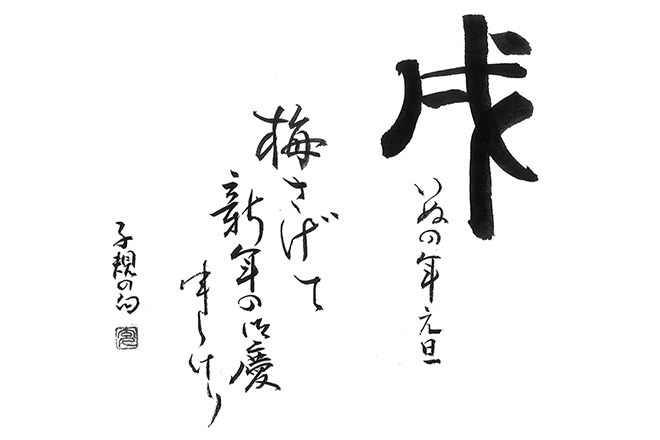 戌
いぬの年元旦
梅さげて
新年の御慶
申しけり
子規の句